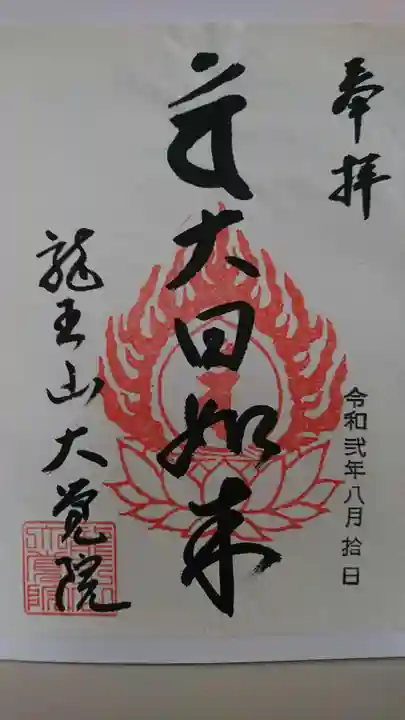 奉拝
令和弐年八月拾日
大日如来
龍王山大覚院